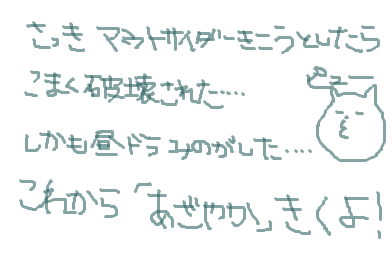 さっき マキシトサイダーきこうとしたら
こまく破壊された…‥
ピュー
しかも昼ドラみのがした‥‥
これから「あざやか」きくよ!